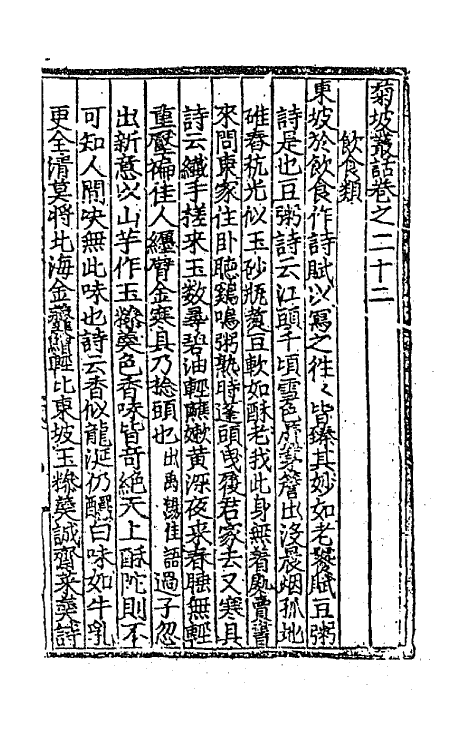 菊坡叢話卷之二十二
飲食類
東坡於飲食作詩賦以寫之往々皆臻其妙如老饕賦豆粥
詩是也豆粥詩云江頭千頃雪色蘆茅簷出沒晨烟孤地
碓舂秔光似玉砂瓶煑豆軟如酥老我此身無着處賣書
來問東家住卧聽鷄鳴粥熟時蓬頭曳履君家去又寒具
詩云纖手搓來玉数尋碧油輕蘸嫩黄深夜來春睡無輕
重壓褊佳人纏臂金寒具乃捻頭也出禹錫佳話過子忽
出新意以山芋作玉糝羮色香味皆奇絕天上酥陀則不
可知人間决無此味也詩云香似龍涎仍釅白味如牛乳
更全清莫將北海金虀鱠輕比東坡玉糝羮誠齋菜羮詩